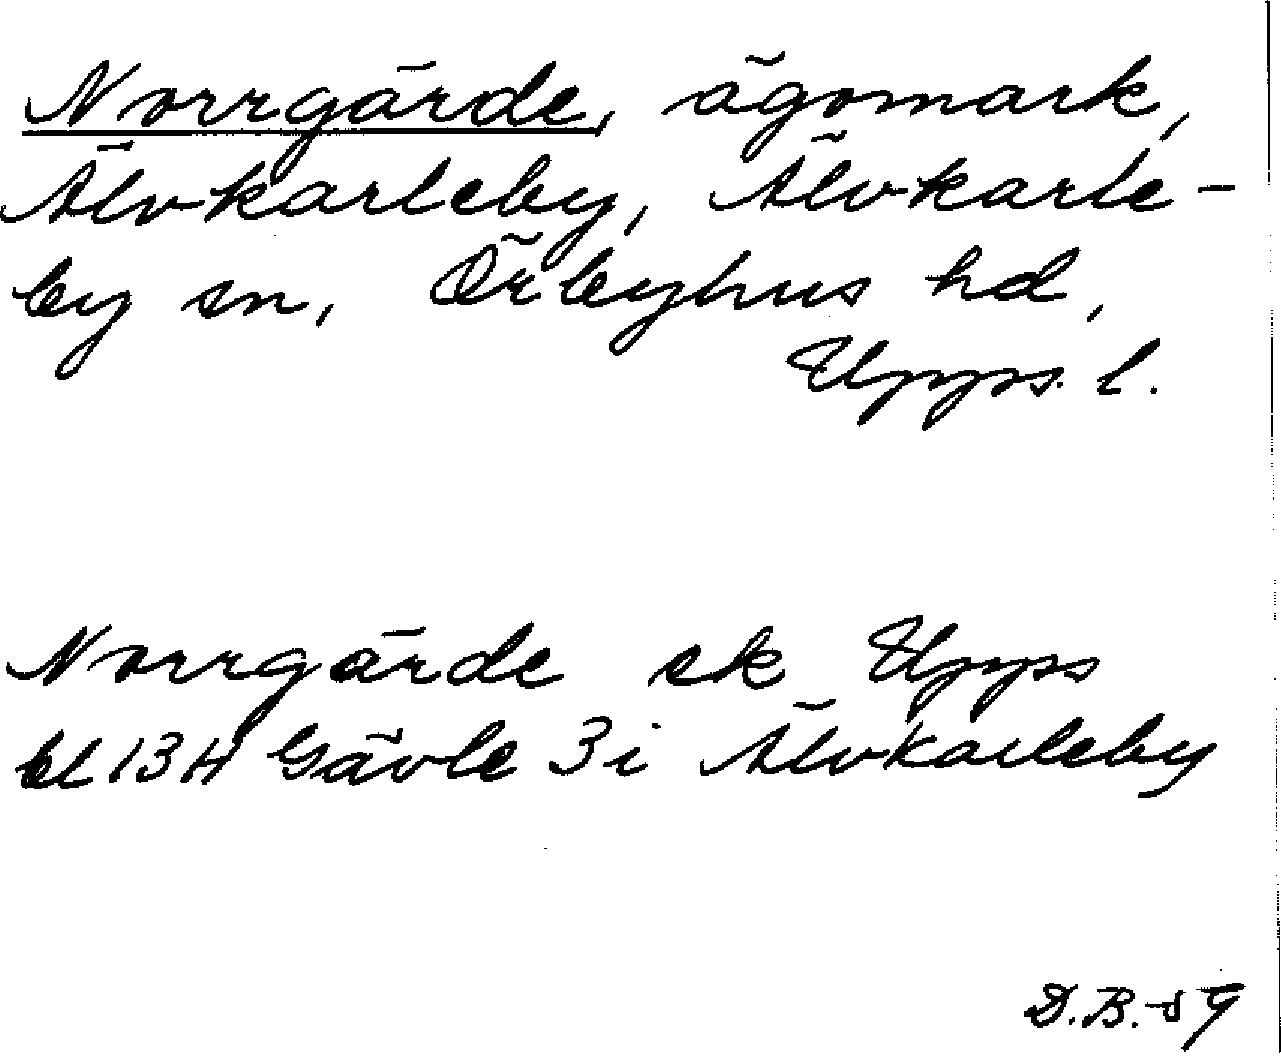 Norrgärde, ägomark,
Älvkarleby, Älvkarle-
by sn, Örbyhus hd,
Upps. l.
Norrgärde ek Upps
bl 13 H Gävle 3 i Älvkarleby
D.B.-59